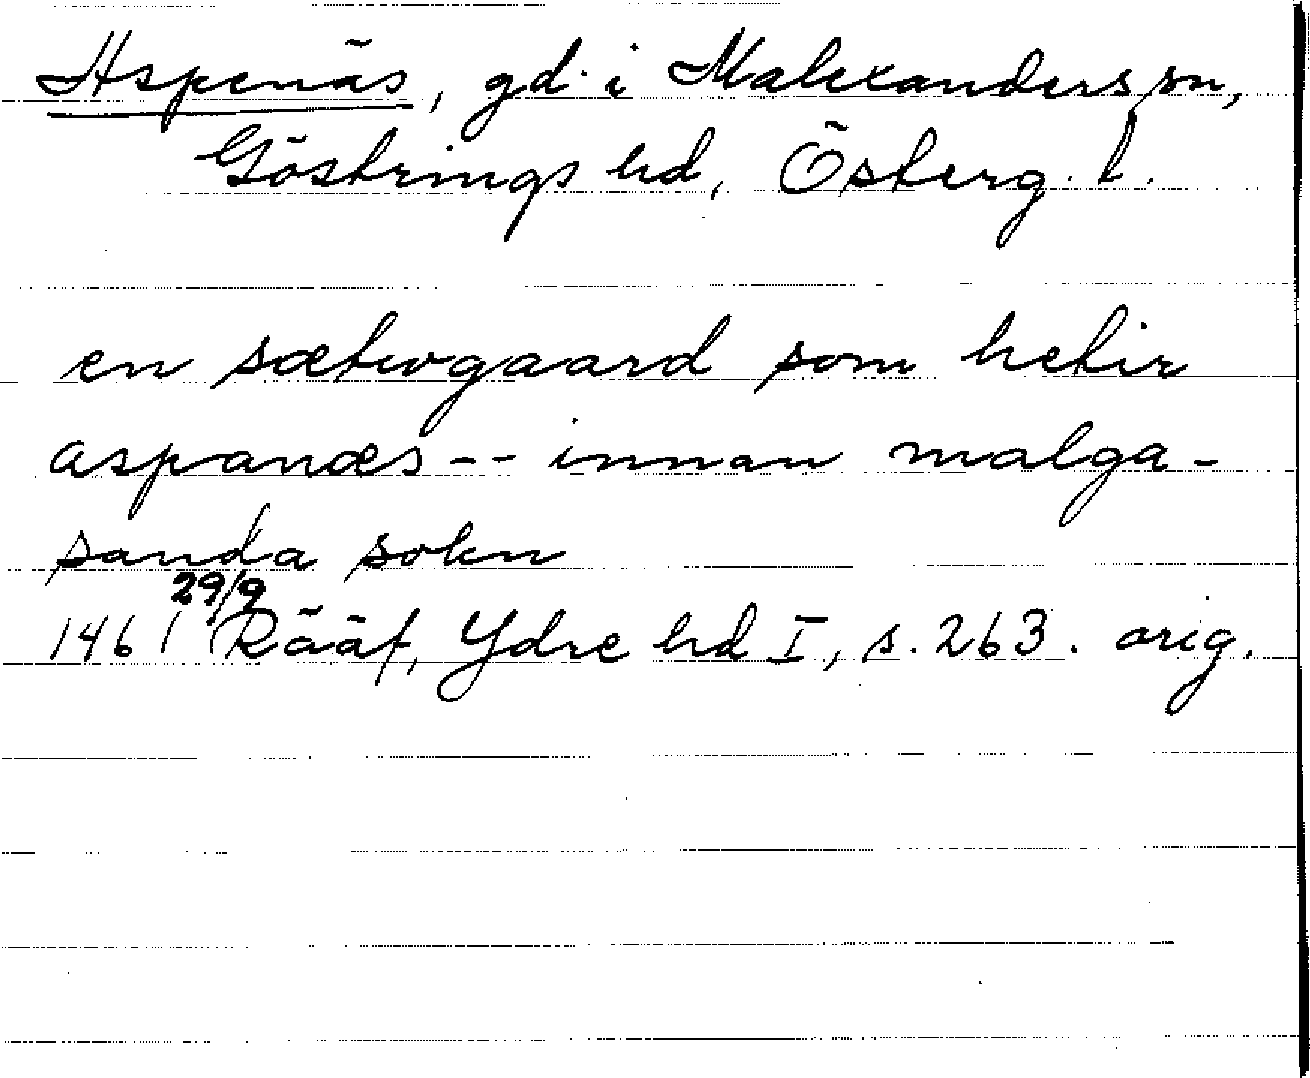 Aspenäs, gd i Malexanders sn,
Göstrings hd, Österg. l.
en sætwgaard som hetir
aspanæs -- innan malga-
sanda sokn
1461 29/9 Rääf, Ydre hd I, s. 263. orig.